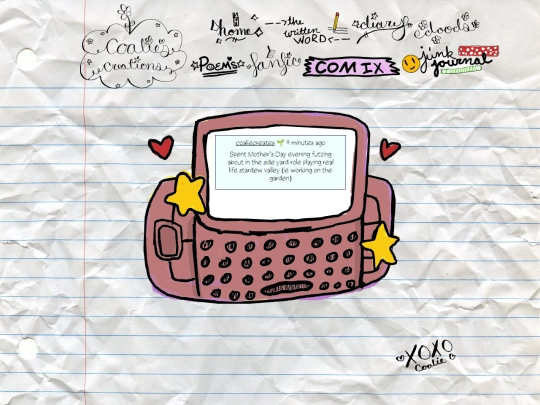 Coalie's
Creations
home
--->the
written
WORD<---
diary
doods
POEMS
fanfic
COMIX
junk
journal
coaliecreates 🌱 9 minutes ago
Spent Mother's Day evening futzing
about in the side yard role playing real
life stardew valley (ie working on the
garden)
XOXO
Coalie